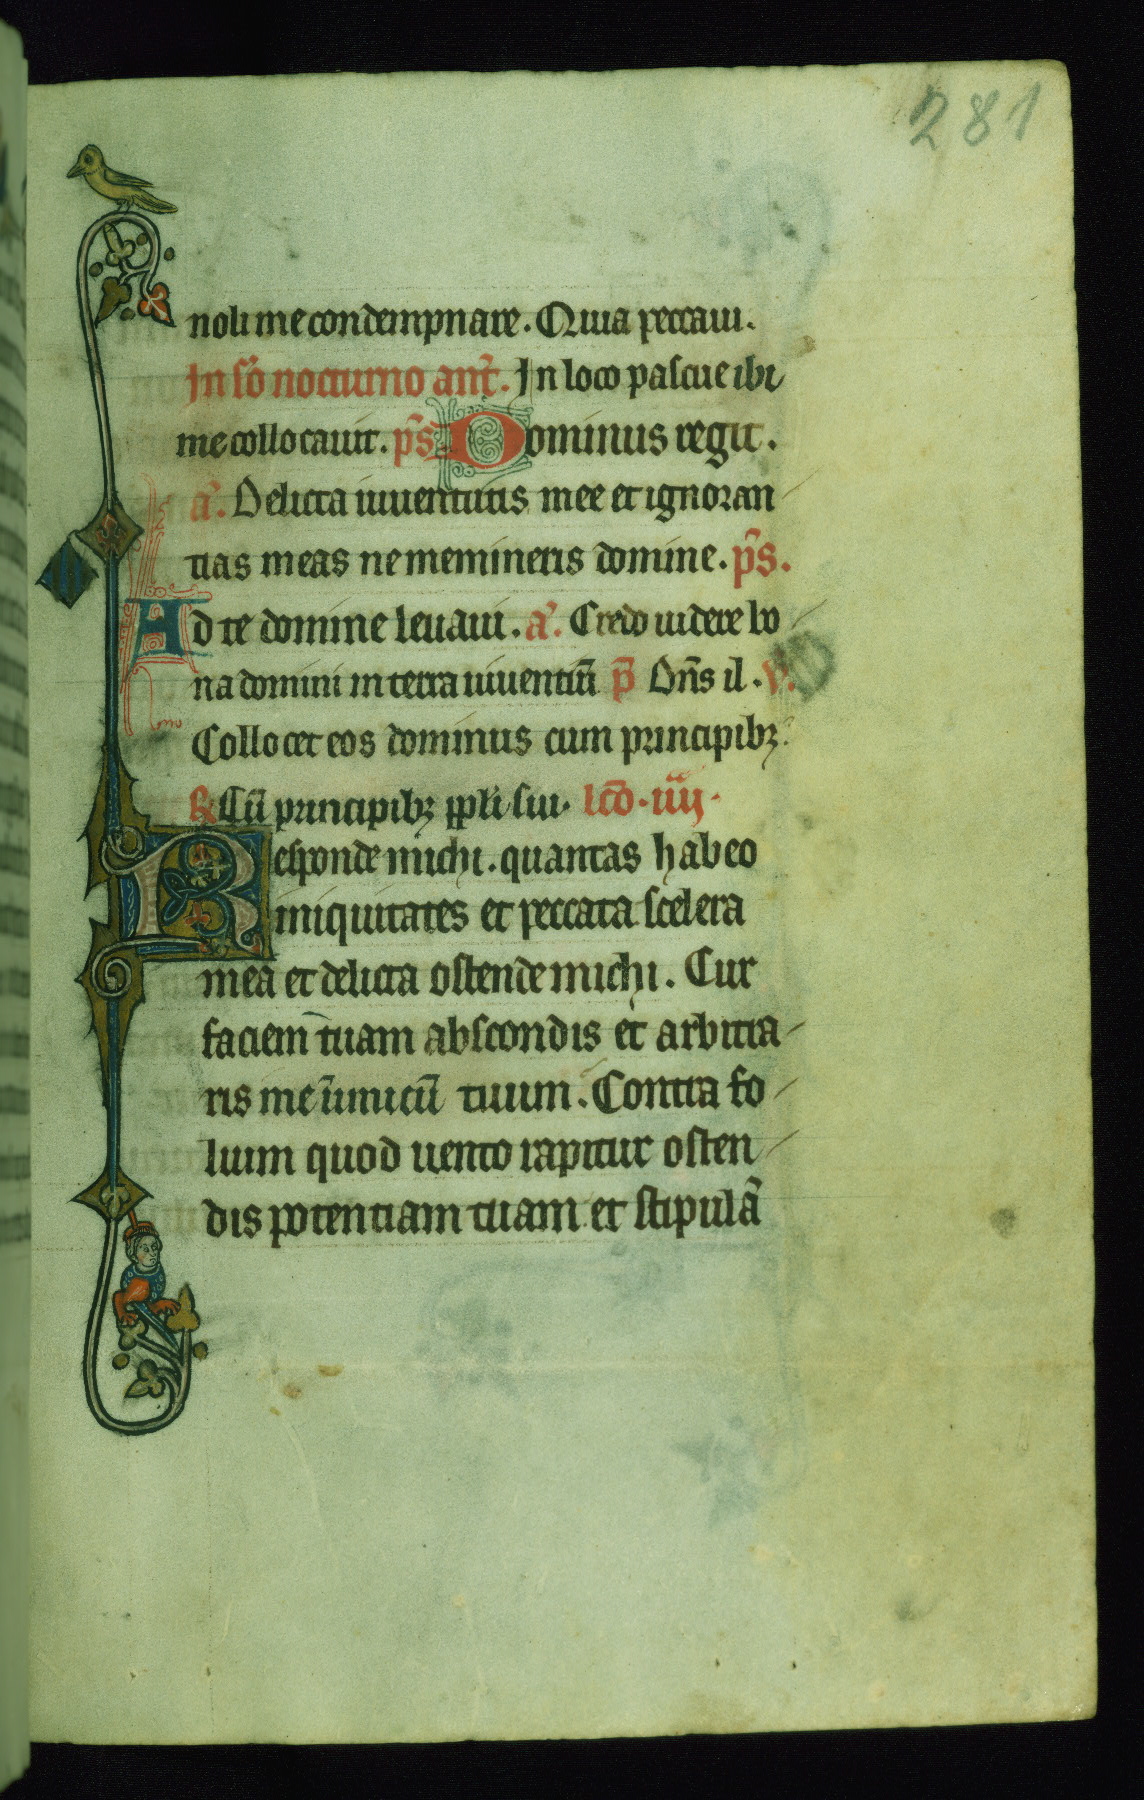 281
noli me condempnare. Quia peccaui.
In so nocturno ant. In loco pascue ibi
me collocauit. ps Dominus regit.
a. Delicta iuuentutis mee et ignoran
tias meas ne memineris domine. ps.
Ad te domine leuaui. a. Credo uidere bo
na domini in terra uiuentiū p̄ Dn̄s il. V.
Collocet eos dominus cum principibꝫ.
R Cū principibꝫ ppli sui. lcō. iiij.
Responde michi. quantas habeo
iniquitates et peccata scelera
mea et delicta ostende michi. Cur
faciem tuam abscondis et arbitra
ris me inimicū tuum. Contra fo
lium quod uento rapitur osten
dis potentiam tuam et stipulā